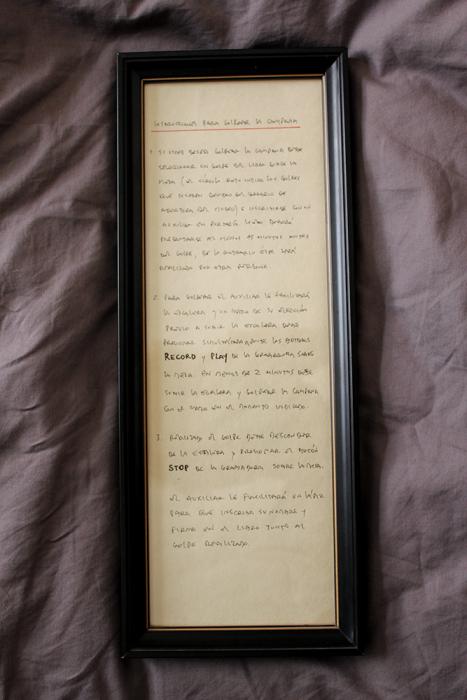 INSTRUCCIONES PARA GOLPEAR LA CAMPANA
1. SI USTED DESEA GOLPEAR LA CAMPANA DEBE
SELECCIONAR UN GOLPE DEL LIBRO SOBRE LA
MESA (EL CÍRCULO ROJO INDICA LOS GOLPES
QUE
APERTURA DEL MUSEO) E INSCRIBIRSE CON UN
AUXILIAR EN
PRESENTARSE AL MENOS 15 MINUTOS ANTES
DEL GOLPE, DE LO CONTRARIO ÉSTE SERÁ
REALIZADO POR OTRA PERSONA.
2. PARA GOLPEAR EL AUXILIAR LE FACILITARÁ
LA ESCALERA Y UN MAZO DE SU ELECCIÓN
PREVIO A SUBIR LA ESCALERA DEBE
PRESIONAR SIMULTÁNEAMENTE LOS BOTONES
RECORD Y PLAY DE LA GRABADORA SOBRE
LA MESA. EN MENOS DE 2 MINUTOS DEBE
SUBIR LA ESCALERA Y GOLPEAR LA CAMPANA
CON EL MAZO EN EL MOMENTO INDICADO.
3. REALIZADO EL GOLPE DEBE DESCENDER
DE LA ESCALERA Y PRESIONAR EL BOTÓN
STOP DE LA GRABADORA SOBRE LA MESA.
EL AUXILIAR LE FACILITARÁ UN LÁPIZ
PARA QUE INSCRIBA SU NOMBRE Y
FIRMA EN EL LIBRO JUNTO AL
GOLPE REALIZADO.